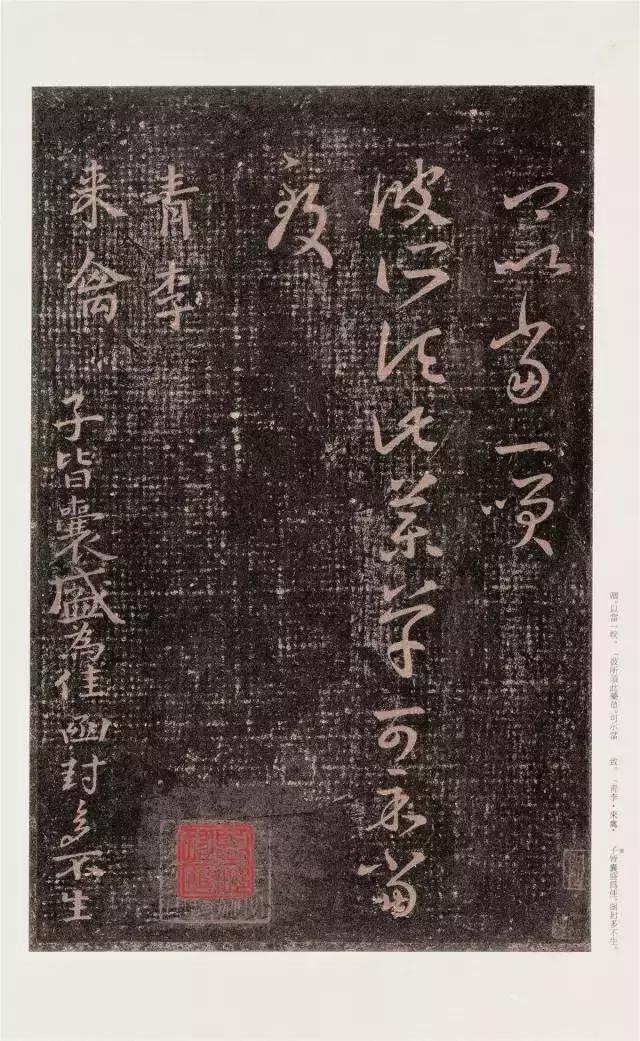 卿以當一咲
彼所須此藥草可示當
致
青李
来禽
子皆囊盛為佳函封多不生
以當一咲。「彼所須此藥草。可示當 致。「青李・來禽・ 子皆囊盛爲佳。函封多不生。